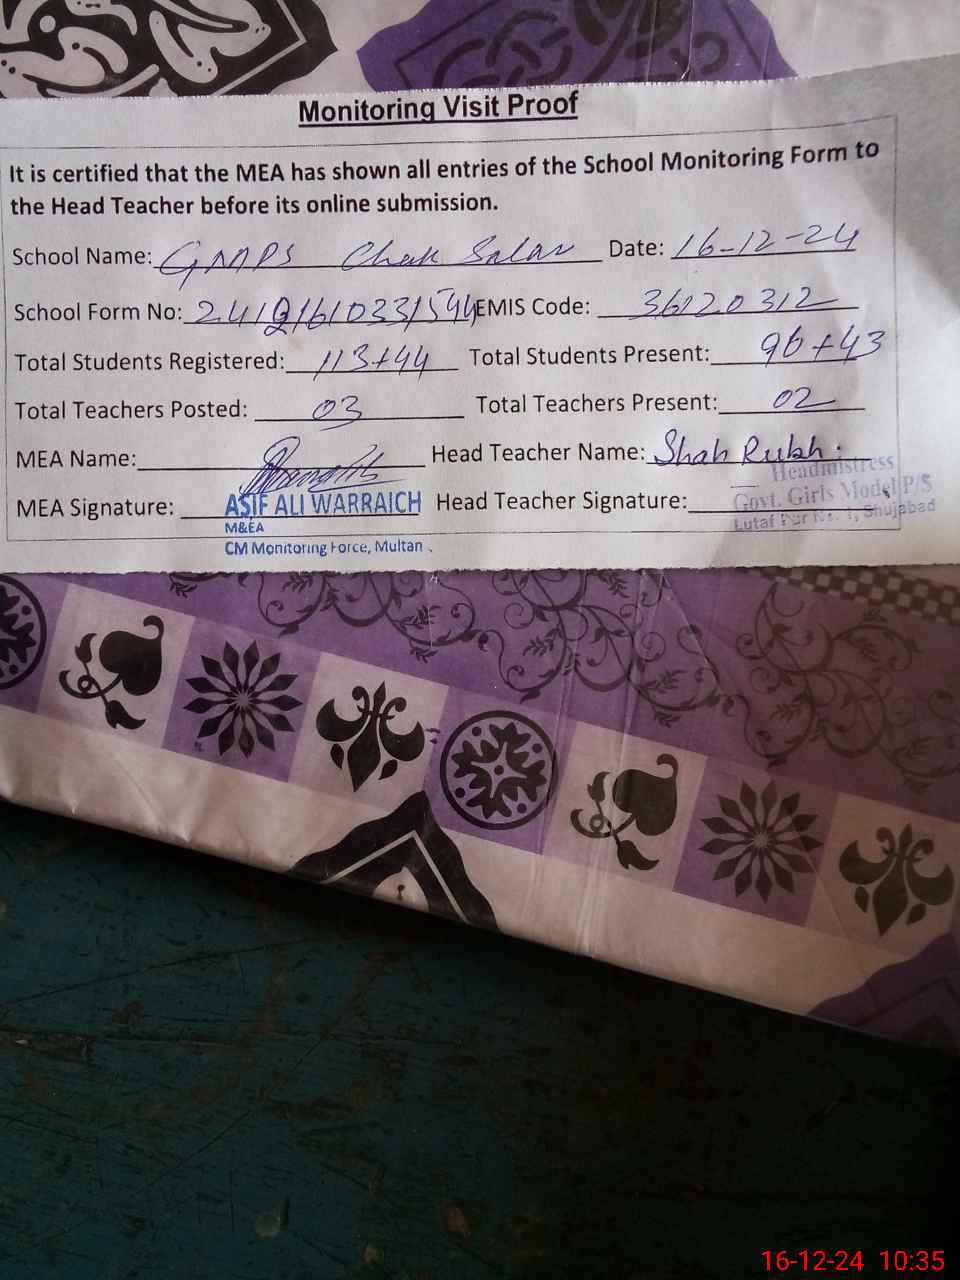 Monitoring Visit Proof
It is certified that the MEA has shown all entries of the School Monitoring Form to
the Head Teacher before its online submission.
School Name: GMMPS Chak Salar Date: 16-12-24
School Form No: EMIS Code: 36120312
Total Students Registered: 113+44 Total Students Present: 96+43
Total Teachers Posted: 03 Total Teachers Present: 02
MEA Name: Head Teacher Name: Shah Rukh
MEA Signature: ASIF ALI WARRAICH Head Teacher Signature:
M&EA
CM Monitoring Force, Multan
Headmistress
Govt. Girls Model P/S
Lutaf Pur No. 1, Shujabad
16-12-24 10:35